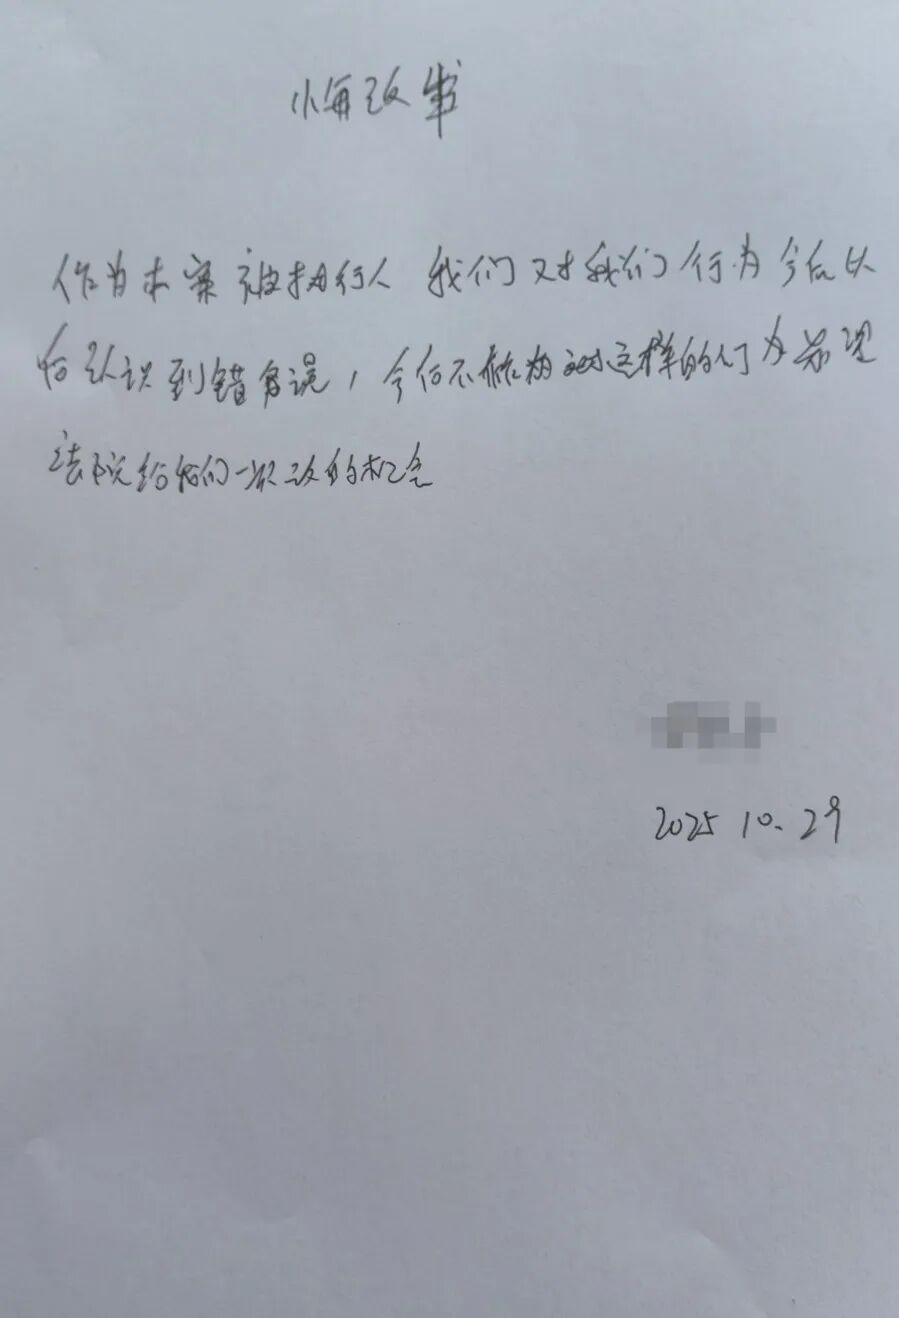 悔改书
作为本案被执行人 我们对我们行为今后从
后认识到错误，今后不做这样的行为 希望
法院给我们一次改的机会
2025 10.29